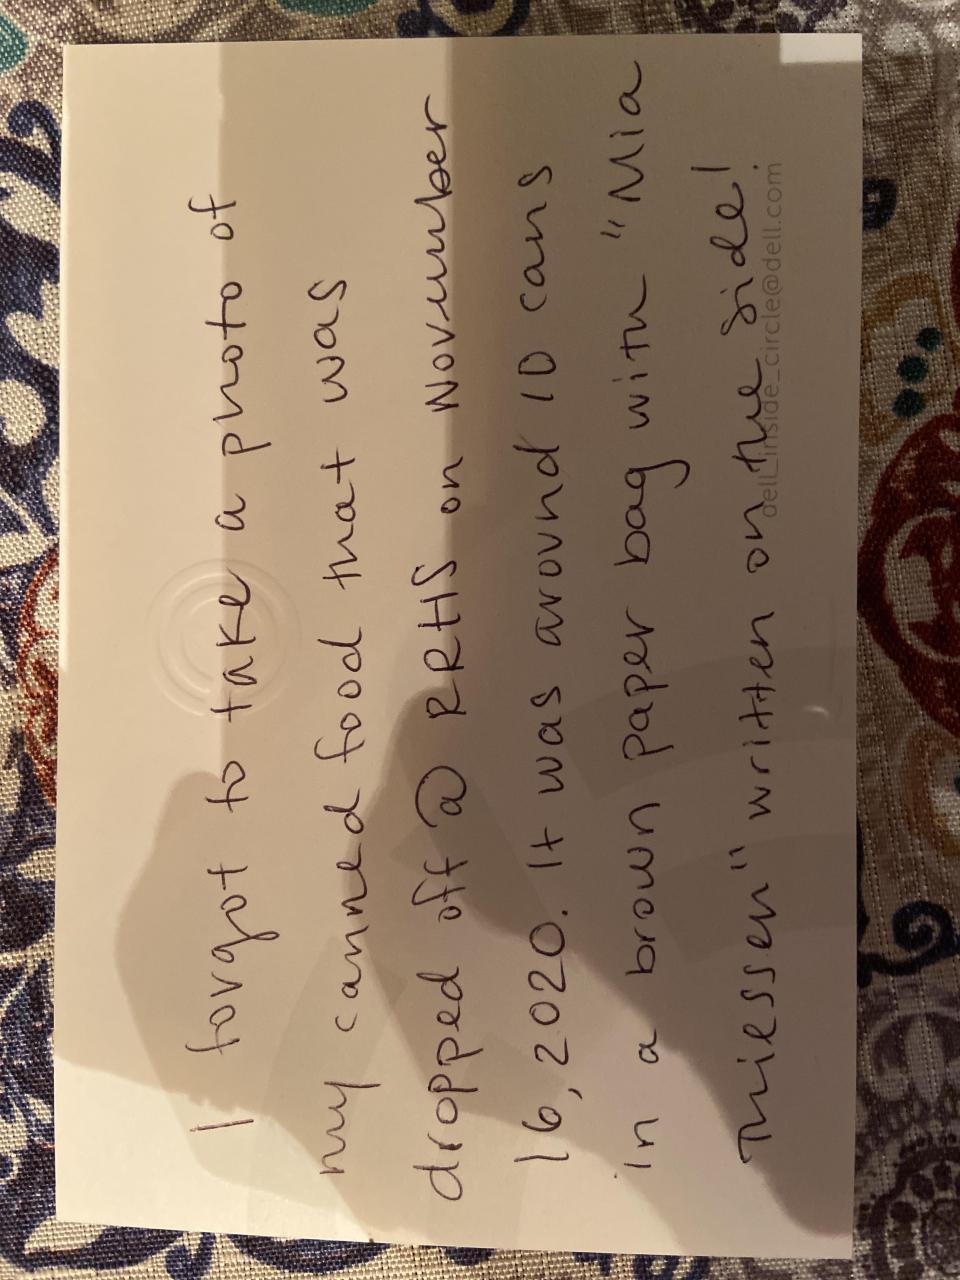 I forgot to take a photo of
my canned food that was
dropped off @ RHS on November
16, 2020. It was around 10 cans
in a brown paper bag with "Mia
Thiessen" written on the side!
dell_inside_circle@dell.com